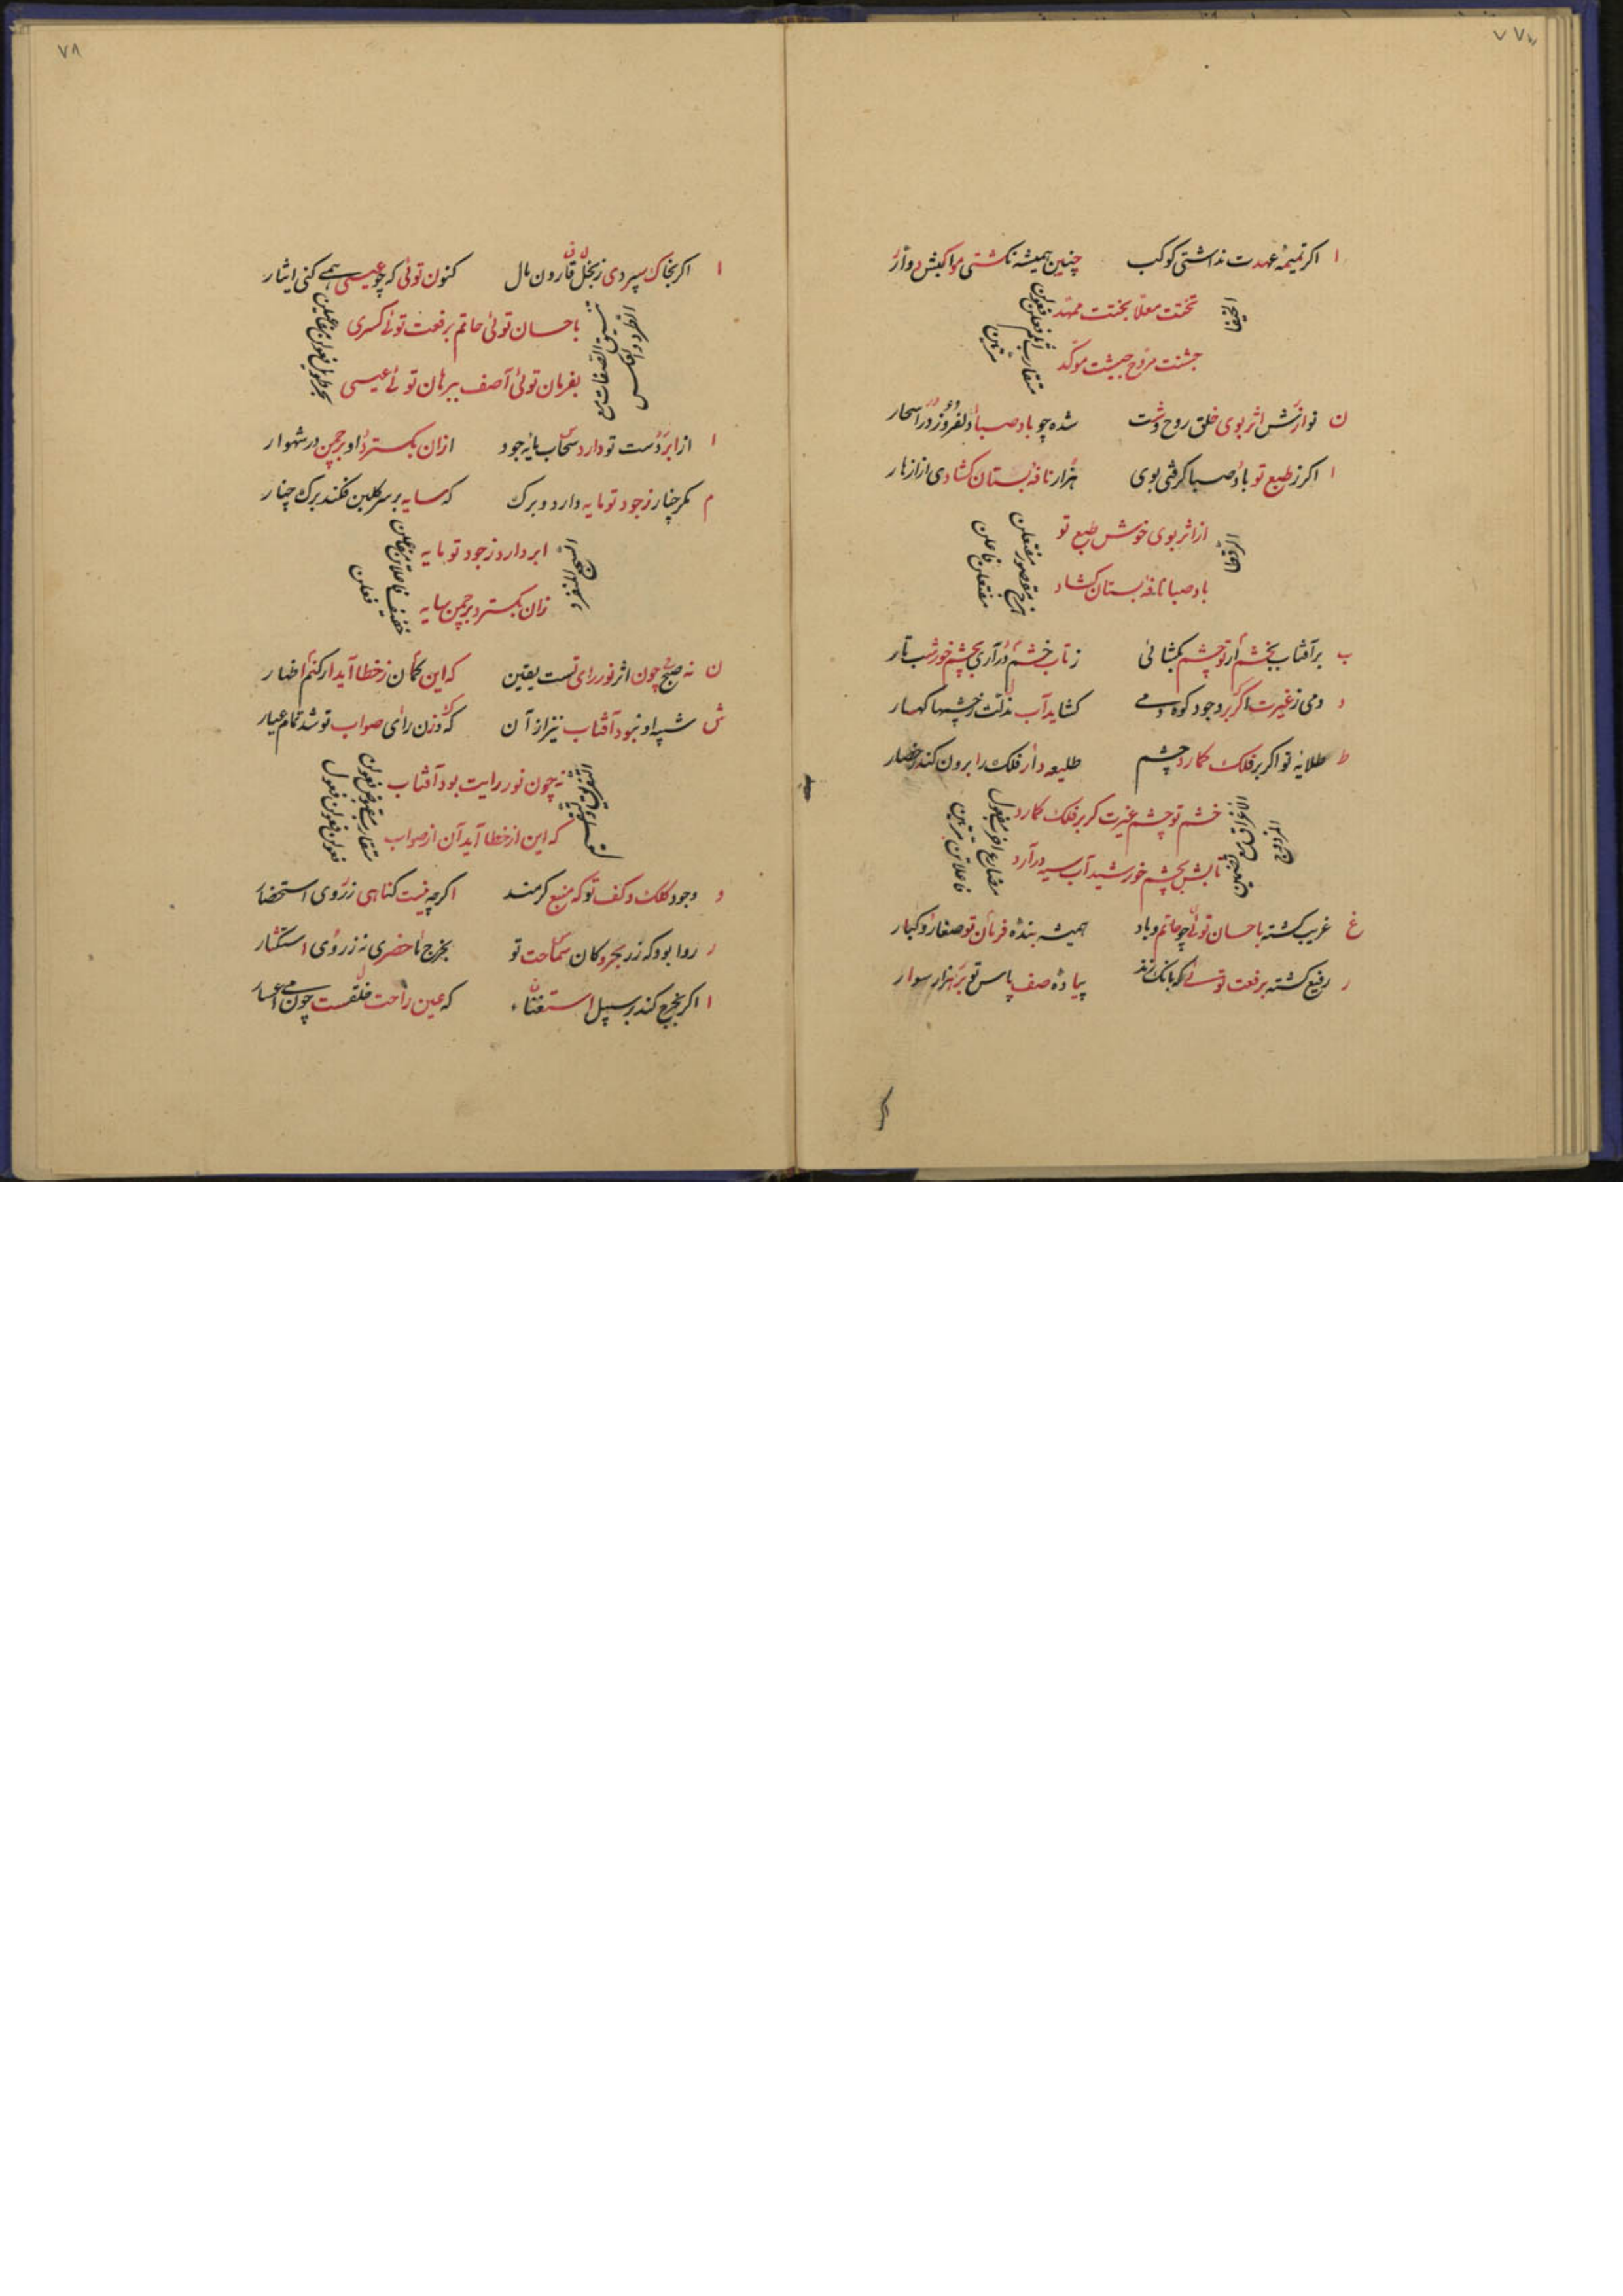 ۷۷
ا اکر تمیمهٔ عهدت نداشتی کوکب چنین همیشه نکشتی مواکبش دوار
تختت معلا بختت ممهد
جشنت مروح جیشت موکد
متقارب اثلم فعلن فعولن مرتین
ن نوازش اثر بوی خلق روح وشت شده چو باد صبا دلفروز در اسحار
ا اکر ز طبع تو باد صبا کرفتی بوی هزار نافه بستان کشادی از ازهار
از اثر بوی خوش طبع تو
باد صبا نافه بستان کشاد
مفتعلن مفتعلن فاعلن
ب بر آفتاب بخشم ار تو چشم بکشائی ز تاب خشم در آری بچشم خور شب تار
د دمی ز غیرت اکر بر وجود کوه دمی کشاید آب مذلت ز چشمها کهسار
ط طلایهٔ تو اکر بر فلک کمارد چشم طلیعه دار فلک را برون کند ز حصار
خشم تو چشم غیرت کر بر فلک کمارد
تابش بچشم خورشید آب سیه در آرد
مضارع اخرب مفعول فاعلاتن مرتین
غ غریب کشته باحسان توئی چو حاتم و باد همیشه بندهٔ فرمان تو صغار و کبار
ر رفیع کشته برفعت توئی که بانک زند پیادهٔ صف پاس تو بر هزار سوار
۷۸
ا اکر بخاک سپردی ز بخل قارون مال کنون توئی که چو عیسی همی کنی ایثار
باحسان توئی حاتم برفعت توئی کسری
بفرمان توئی آصف ببرهان توئی عیسی
تنسیق الصفات مع الطرد و العکس
بحر طویل فعولن مفاعیلن
ا از ابر دست تو دارد سحاب مایهٔ جود ازان بکسترد او بر چمن در شهوار
م مکر چنار ز جود تو مایه دارد و برک که سایه بر سر کلبن فکند برک چنار
ابر دارد ز جود تو مایه
زان بکسترد بر چمن سایه
خفیف فاعلاتن مفاعلن فعلن
ن نه صبح چون اثر نور رای تست یقین که این کمان ز خطا آید ار کنم اظهار
ش شبه او نبود آفتاب نیز از آن که وزن رای صواب تو شد تمام عیار
نه چون نور رایت بود آفتاب
که این از خطا آید آن از صواب
فعولن فعولن فعول
و وجود کلک و کف تو که منبع کرمند اکرچه نیست کناهی ز روی استحضار
ر روا بود که زر بحر و کان سماحت تو بخرج ما حضری نه ز روی استکثار
ا اکر بخرج کند بر سبیل استغناء که عین راحت خلقست چون می اعسار